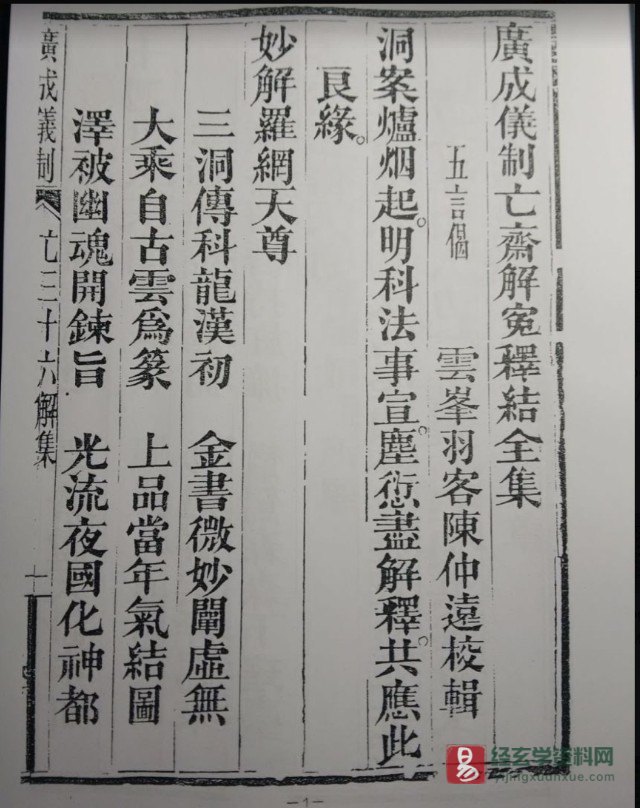 廣成儀制亡齋解冤釋結全集
五言偈
雲峯羽客陳仲遠校輯
洞案爐烟起。明科法事宣。塵愆盡解釋。共應此
良緣。
妙解羅網天尊
三洞傳科龍漢初　金書微妙闡虛無
大乘自古雲爲篆　上品當年氣結圖
澤被幽魂開鍊旨　光流夜國化神都
廣成儀制　亡三十六解集　一
—1—
易 经玄学资料网
yijingxuanxue.com